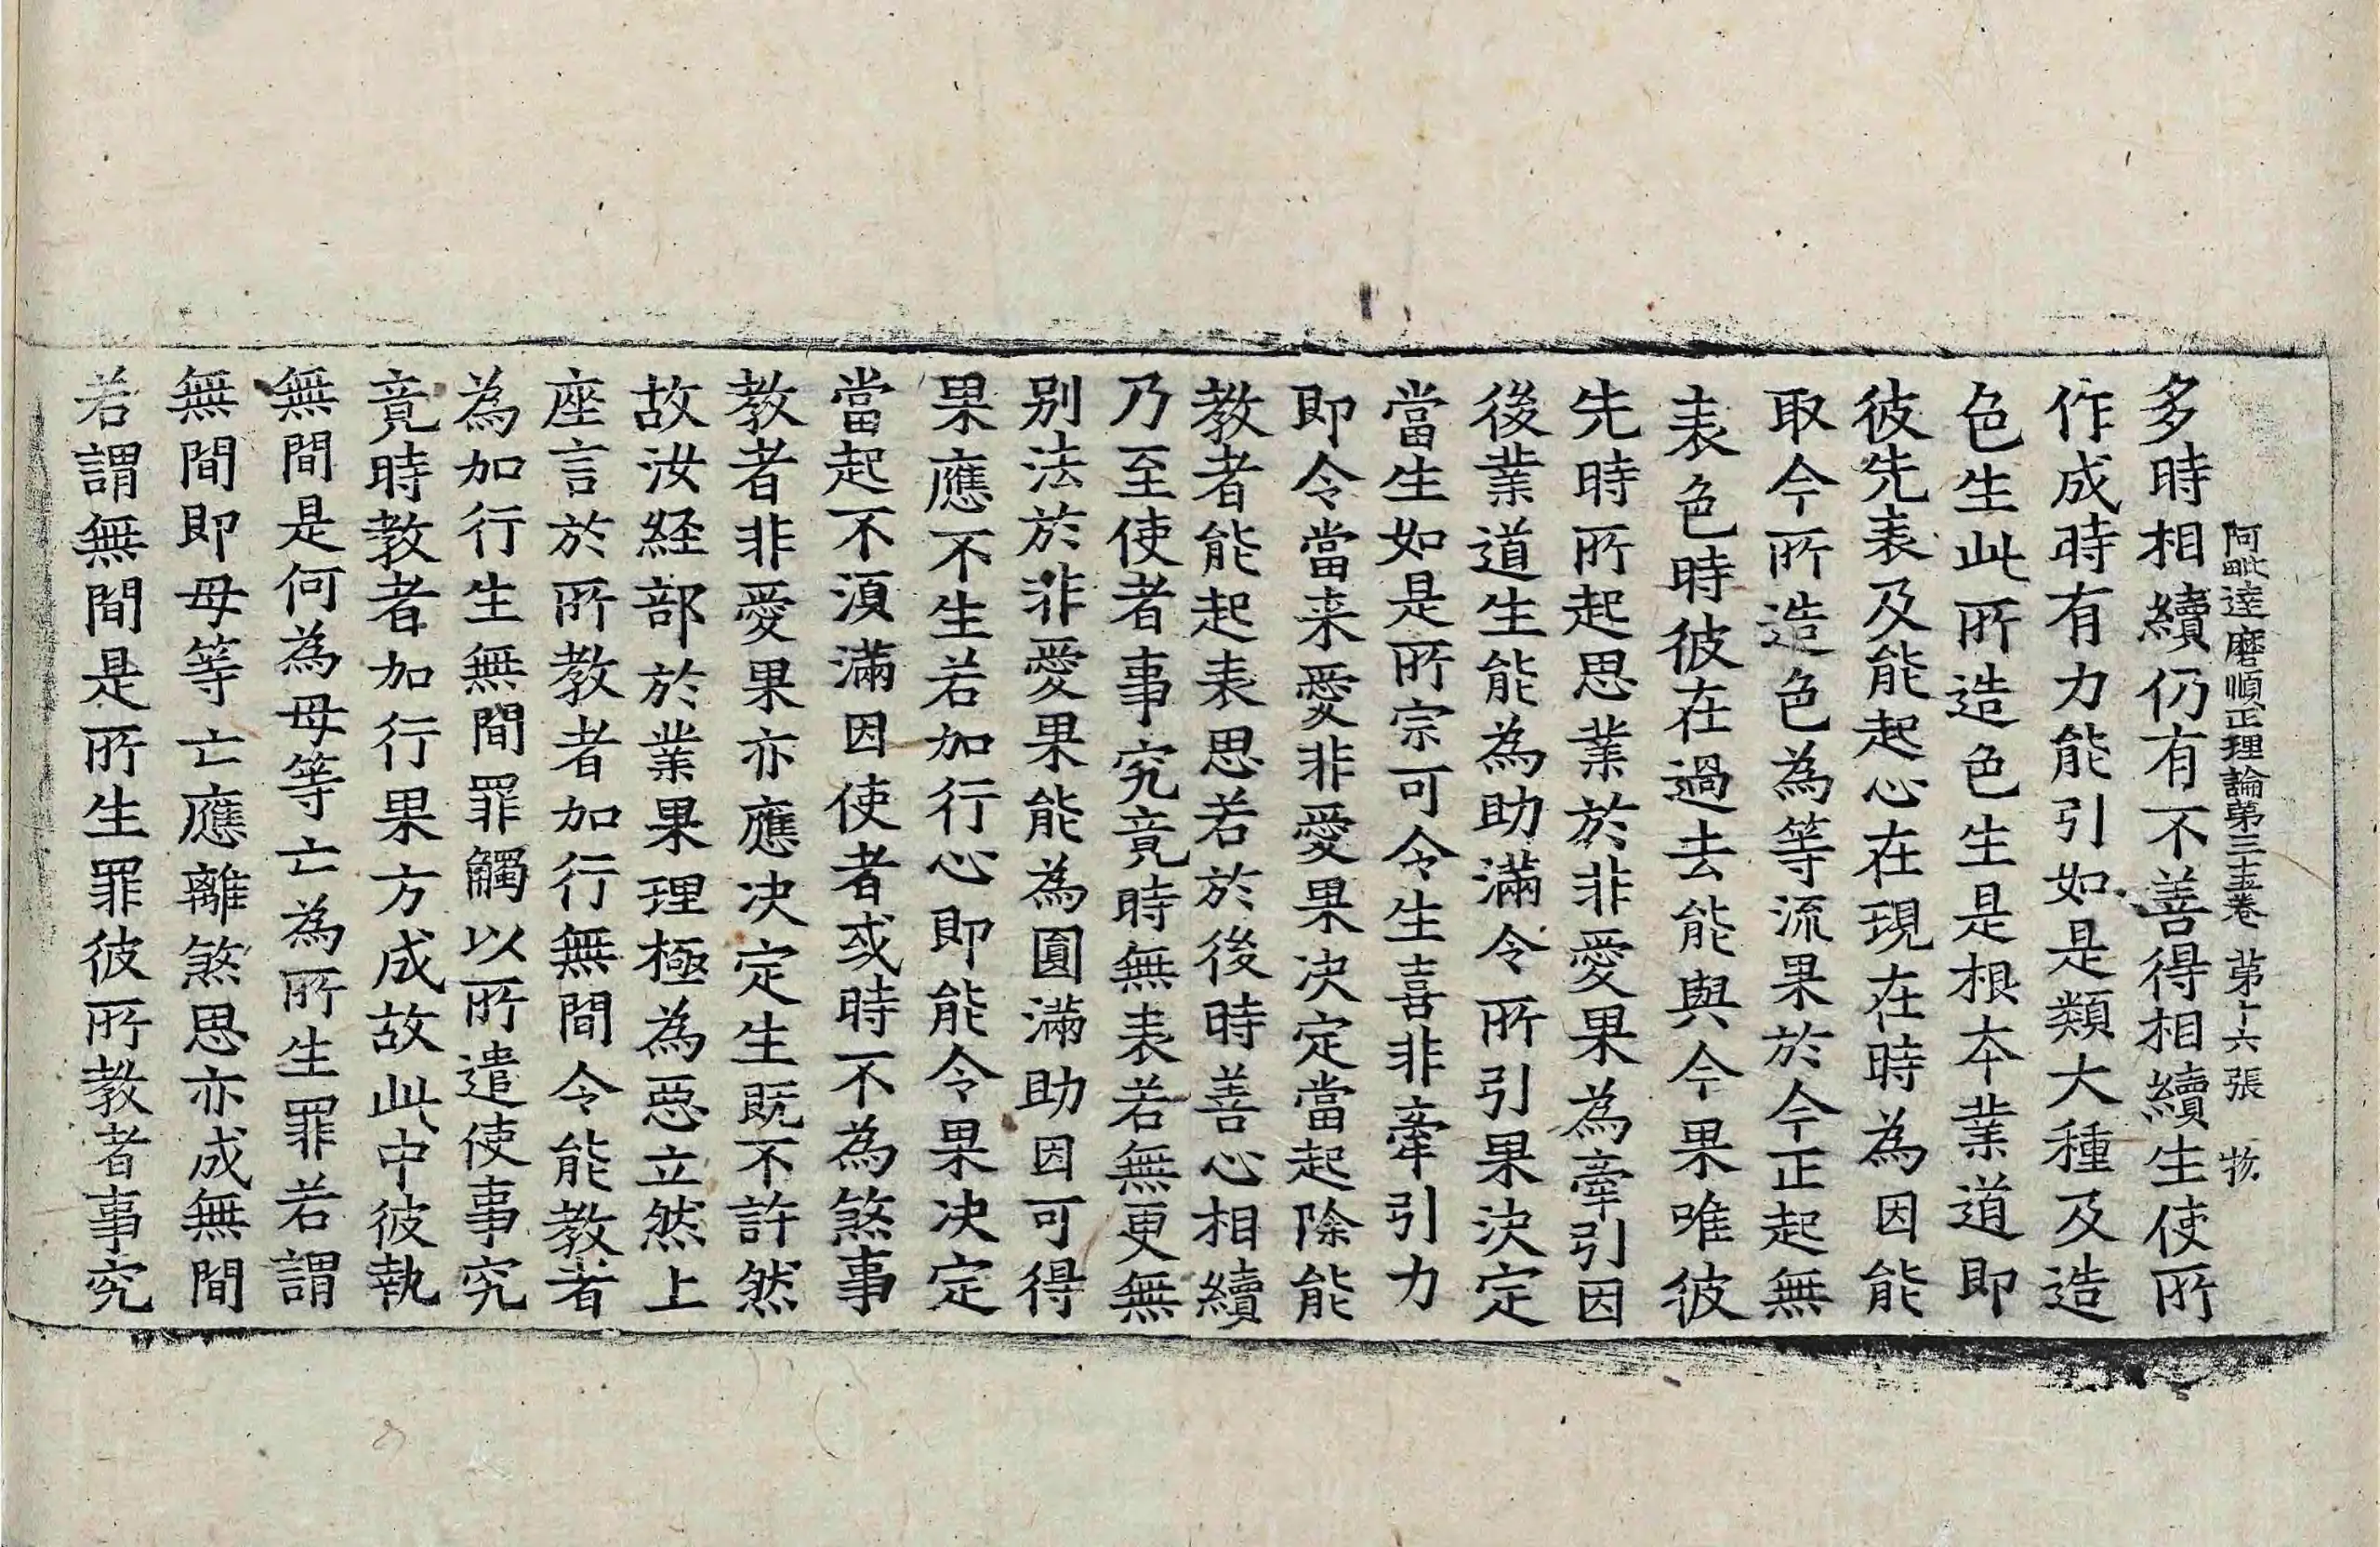 阿毗達磨順正理論第三十五卷 第十六張 物
多時相續仍有不善得相續生使所
作成時有力能引如是類大種及造
色生此所造色生是根本業道即
彼先表及能起心在現在時為因能
取今所造色為等流果於今正起無
表色時彼在過去能與今果唯彼
先時所起思業於非愛果為牽引因
後業道生能為助滿令所引果決定
當生如是所宗可令生喜非牽引力
即令當来愛非愛果決定當起除能
教者能起表思若於後時善心相續
乃至使者事究竟時無表若無更無
別法於非愛果能為圓滿助因可得
果應不生若加行心即能令果決定
當起不須滿因使者或時不為煞事
教者非愛果亦應決定生既不許然
故汝経部於業果理極為惡立然上
座言於所教者加行無間令能教者
為加行生無間罪觸以所遣使事究
竟時教者加行果方成故此中彼執
無間是何為母等亡為所生罪若謂
無間即母等亡應離煞思亦成無間
若謂無間是所生罪彼所教者事究